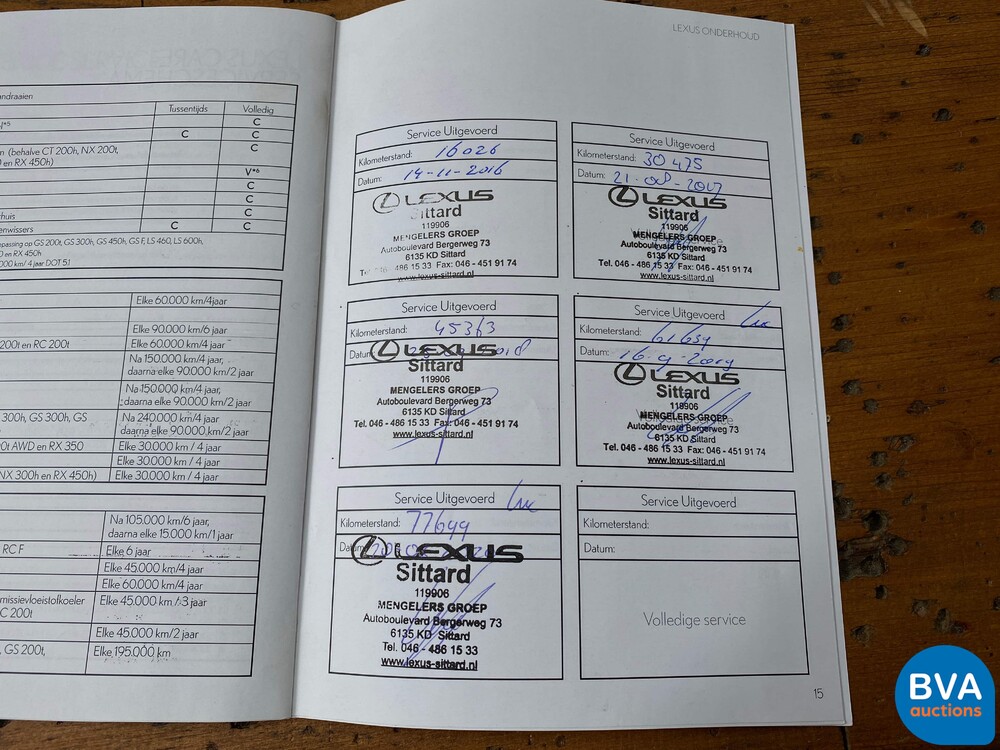 andraaien
Tussentijds Volledig
C
C C
(behalve CT 200h, NX 200t, C
en RX 450h)
V*6
C
C
C
enwissers C C
epassing op GS 200t, GS 300h, GS 450h, GS F, LS 460, LS 600h,
en RX 450h
000 km/ 4 jaar DOT 5.1
Elke 60.000 km/4jaar
Elke 90.000 km/6 jaar
200t en RC 200t Elke 60.000 km/4 jaar
Na 150.000 km/4 jaar,
daarna elke 90.000 km/2 jaar
Na 150.000 km/4 jaar,
daarna elke 90.000 km/2 jaar
300h, GS 300h, GS Na 240.000 km/4 jaar
daarna elke 90.000 km/2 jaar
AWD en RX 350 Elke 30.000 km / 4 jaar
Elke 30.000 km / 4 jaar
NX 300h en RX 450h) Elke 30.000 km / 4 jaar
Na 105.000 km/6 jaar,
daarna elke 15.000 km/1 jaar
RC F Elke 6 jaar
Elke 45.000 km/4 jaar
Elke 60.000 km/4 jaar
missievloeistofkoeler Elke 45.000 km/3 jaar
C 200t
Elke 45.000 km/2 jaar
GS 200t, Elke 195.000 km
LEXUS ONDERHOUD
Service Uitgevoerd
Kilometerstand: 16026
Datum: 14-11-2016
LEXUS
Sittard
119906
MENGELERS GROEP
Autoboulevard Bergerweg 73
6135 KD Sittard
486 15 33 Fax: 046 - 451 91 74
www.lexus-sittard.nl
Service Uitgevoerd
Kilometerstand: 30475
Datum: 21-08-2017
LEXUS
Sittard
119906
MENGELERS GROEP
Autoboulevard Bergerweg 73
6135 KD Sittard
Tel. 046 - 486 15 33 Fax: 046 - 451 91 74
www.lexus-sittard.nl
Service Uitgevoerd
Kilometerstand: 45363
LEXUS
Sittard
119906
MENGELERS GROEP
Autoboulevard Bergerweg 73
6135 KD Sittard
Tel. 046 - 486 15 33 Fax: 046 - 451 91 74
www.lexus-sittard.nl
Service Uitgevoerd
Kilometerstand: 61659
Datum: 16-9-2019
LEXUS
Sittard
119906
MENGELERS GROEP
Autoboulevard Bergerweg 73
6135 KD Sittard
Tel. 046 - 486 15 33 Fax: 046 - 451 91 74
www.lexus-sittard.nl
Service Uitgevoerd
Kilometerstand: 77699
LEXUS
Sittard
119906
MENGELERS GROEP
Autoboulevard Bergerweg 73
6135 KD Sittard
Tel. 046 - 486 15 33
www.lexus-sittard.nl
Service Uitgevoerd
Kilometerstand:
Datum:
Volledige service
15
BVA
auctions